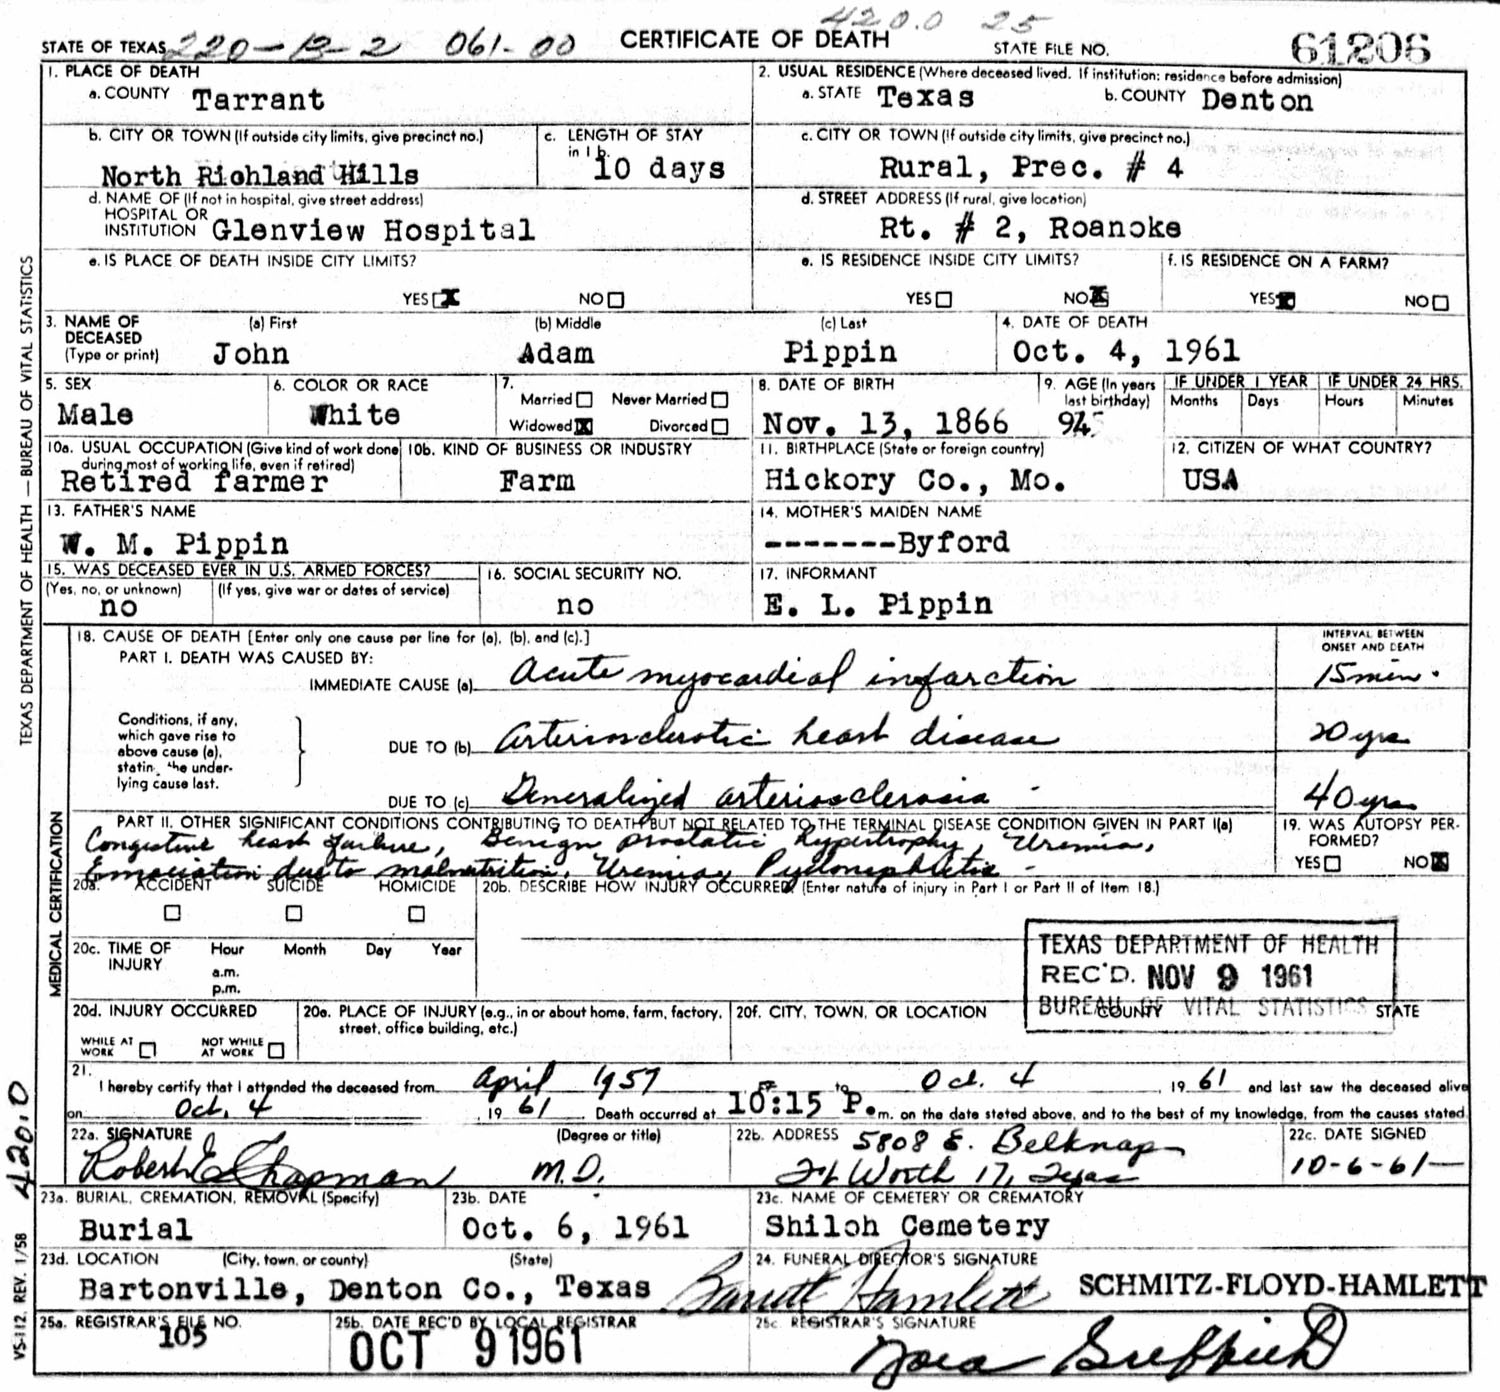 420.0 25
STATE OF TEXAS 220-12-2 061-00 CERTIFICATE OF DEATH STATE FILE NO. 61206
1. PLACE OF DEATH
a. COUNTY Tarrant
2. USUAL RESIDENCE (Where deceased lived. If institution: residence before admission)
a. STATE Texas b. COUNTY Denton
b. CITY OR TOWN (If outside city limits, give precinct no.)
North Richland Hills
c. LENGTH OF STAY
in 1 b.
10 days
c. CITY OR TOWN (If outside city limits, give precinct no.)
Rural, Prec. # 4
d. NAME OF (If not in hospital, give street address)
HOSPITAL OR
INSTITUTION Glenview Hospital
d. STREET ADDRESS (If rural, give location)
Rt. # 2, Roanoke
e. IS PLACE OF DEATH INSIDE CITY LIMITS?
YES X NO
e. IS RESIDENCE INSIDE CITY LIMITS?
YES NO X
f. IS RESIDENCE ON A FARM?
YES X NO
3. NAME OF
DECEASED
(Type or print)
(a) First (b) Middle (c) Last
John Adam Pippin
4. DATE OF DEATH
Oct. 4, 1961
5. SEX
Male
6. COLOR OR RACE
White
7.
Married Never Married
Widowed X Divorced
8. DATE OF BIRTH
Nov. 13, 1866
9. AGE (In years
last birthday)
94
IF UNDER 1 YEAR IF UNDER 24 HRS.
Months Days Hours Minutes
10a. USUAL OCCUPATION (Give kind of work done
during most of working life, even if retired)
Retired farmer
10b. KIND OF BUSINESS OR INDUSTRY
Farm
11. BIRTHPLACE (State or foreign country)
Hickory Co., Mo.
12. CITIZEN OF WHAT COUNTRY?
USA
13. FATHER'S NAME
W. M. Pippin
14. MOTHER'S MAIDEN NAME
-------Byford
15. WAS DECEASED EVER IN U.S. ARMED FORCES?
(Yes, no, or unknown) (If yes, give war or dates of service)
no
16. SOCIAL SECURITY NO.
no
17. INFORMANT
E. L. Pippin
18. CAUSE OF DEATH [Enter only one cause per line for (a), (b), and (c).]
PART I. DEATH WAS CAUSED BY:
IMMEDIATE CAUSE (a) Acute myocardial infarction
INTERVAL BETWEEN
ONSET AND DEATH
15 min.
Conditions, if any,
which gave rise to
above cause (a),
stating the under-
lying cause last.
DUE TO (b) Arteriosclerotic heart disease 20 yrs
DUE TO (c) Generalized arteriosclerosis - 40 yrs
PART II. OTHER SIGNIFICANT CONDITIONS CONTRIBUTING TO DEATH BUT NOT RELATED TO THE TERMINAL DISEASE CONDITION GIVEN IN PART I(a)
Congestive heart failure, Benign prostatic hypertrophy, Uremia,
Emaciation due to malnutrition, Uremia, Pyelonephritis -
19. WAS AUTOPSY PER-
FORMED?
YES NO X
20a. ACCIDENT SUICIDE HOMICIDE
20b. DESCRIBE HOW INJURY OCCURRED. (Enter nature of injury in Part I or Part II of Item 18.)
20c. TIME OF
INJURY
Hour Month Day Year
a.m.
p.m.
TEXAS DEPARTMENT OF HEALTH
REC'D. NOV 9 1961
BUREAU OF VITAL STATISTICS
20d. INJURY OCCURRED
WHILE AT
WORK
NOT WHILE
AT WORK
20e. PLACE OF INJURY (e.g., in or about home, farm, factory,
street, office building, etc.)
20f. CITY, TOWN, OR LOCATION COUNTY STATE
21.
I hereby certify that I attended the deceased from April 1957 to Oct. 4, 19 61 and last saw the deceased alive
on Oct. 4 19 61. Death occurred at 10:15 P.m. on the date stated above, and to the best of my knowledge, from the causes stated.
22a. SIGNATURE (Degree or title)
Robert E Chapman M.D.
22b. ADDRESS 5808 E. Belknap
Ft Worth 17, Texas
22c. DATE SIGNED
10-6-61
23a. BURIAL, CREMATION, REMOVAL (Specify)
Burial
23b. DATE
Oct. 6, 1961
23c. NAME OF CEMETERY OR CREMATORY
Shiloh Cemetery
23d. LOCATION (City, town, or county) (State)
Bartonville, Denton Co., Texas
24. FUNERAL DIRECTOR'S SIGNATURE
Barrett Hamlett SCHMITZ-FLOYD-HAMLETT
25a. REGISTRAR'S FILE NO.
105
25b. DATE REC'D BY LOCAL REGISTRAR
OCT 9 1961
25c. REGISTRAR'S SIGNATURE
TEXAS DEPARTMENT OF HEALTH — BUREAU OF VITAL STATISTICS
MEDICAL CERTIFICATION
420.0
VS-112, REV. 1/58